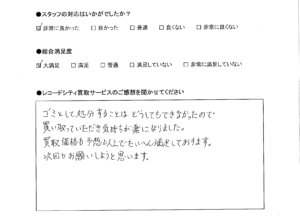 ●スタッフの対応はいかがでしたか？
☑非常に良かった □良かった □普通 □良くない □非常に良くない
●総合満足度
☑大満足 □満足 □普通 □満足していない □非常に満足していない
●レコードシティ買取サービスのご感想を聞かせてください
ゴミとして処分することは どうしてもできなかったので
買い取っていただき気持ちが楽になりました。
買取価格も予想以上でたいへん満足しております。
次回もお願いしようと思います。